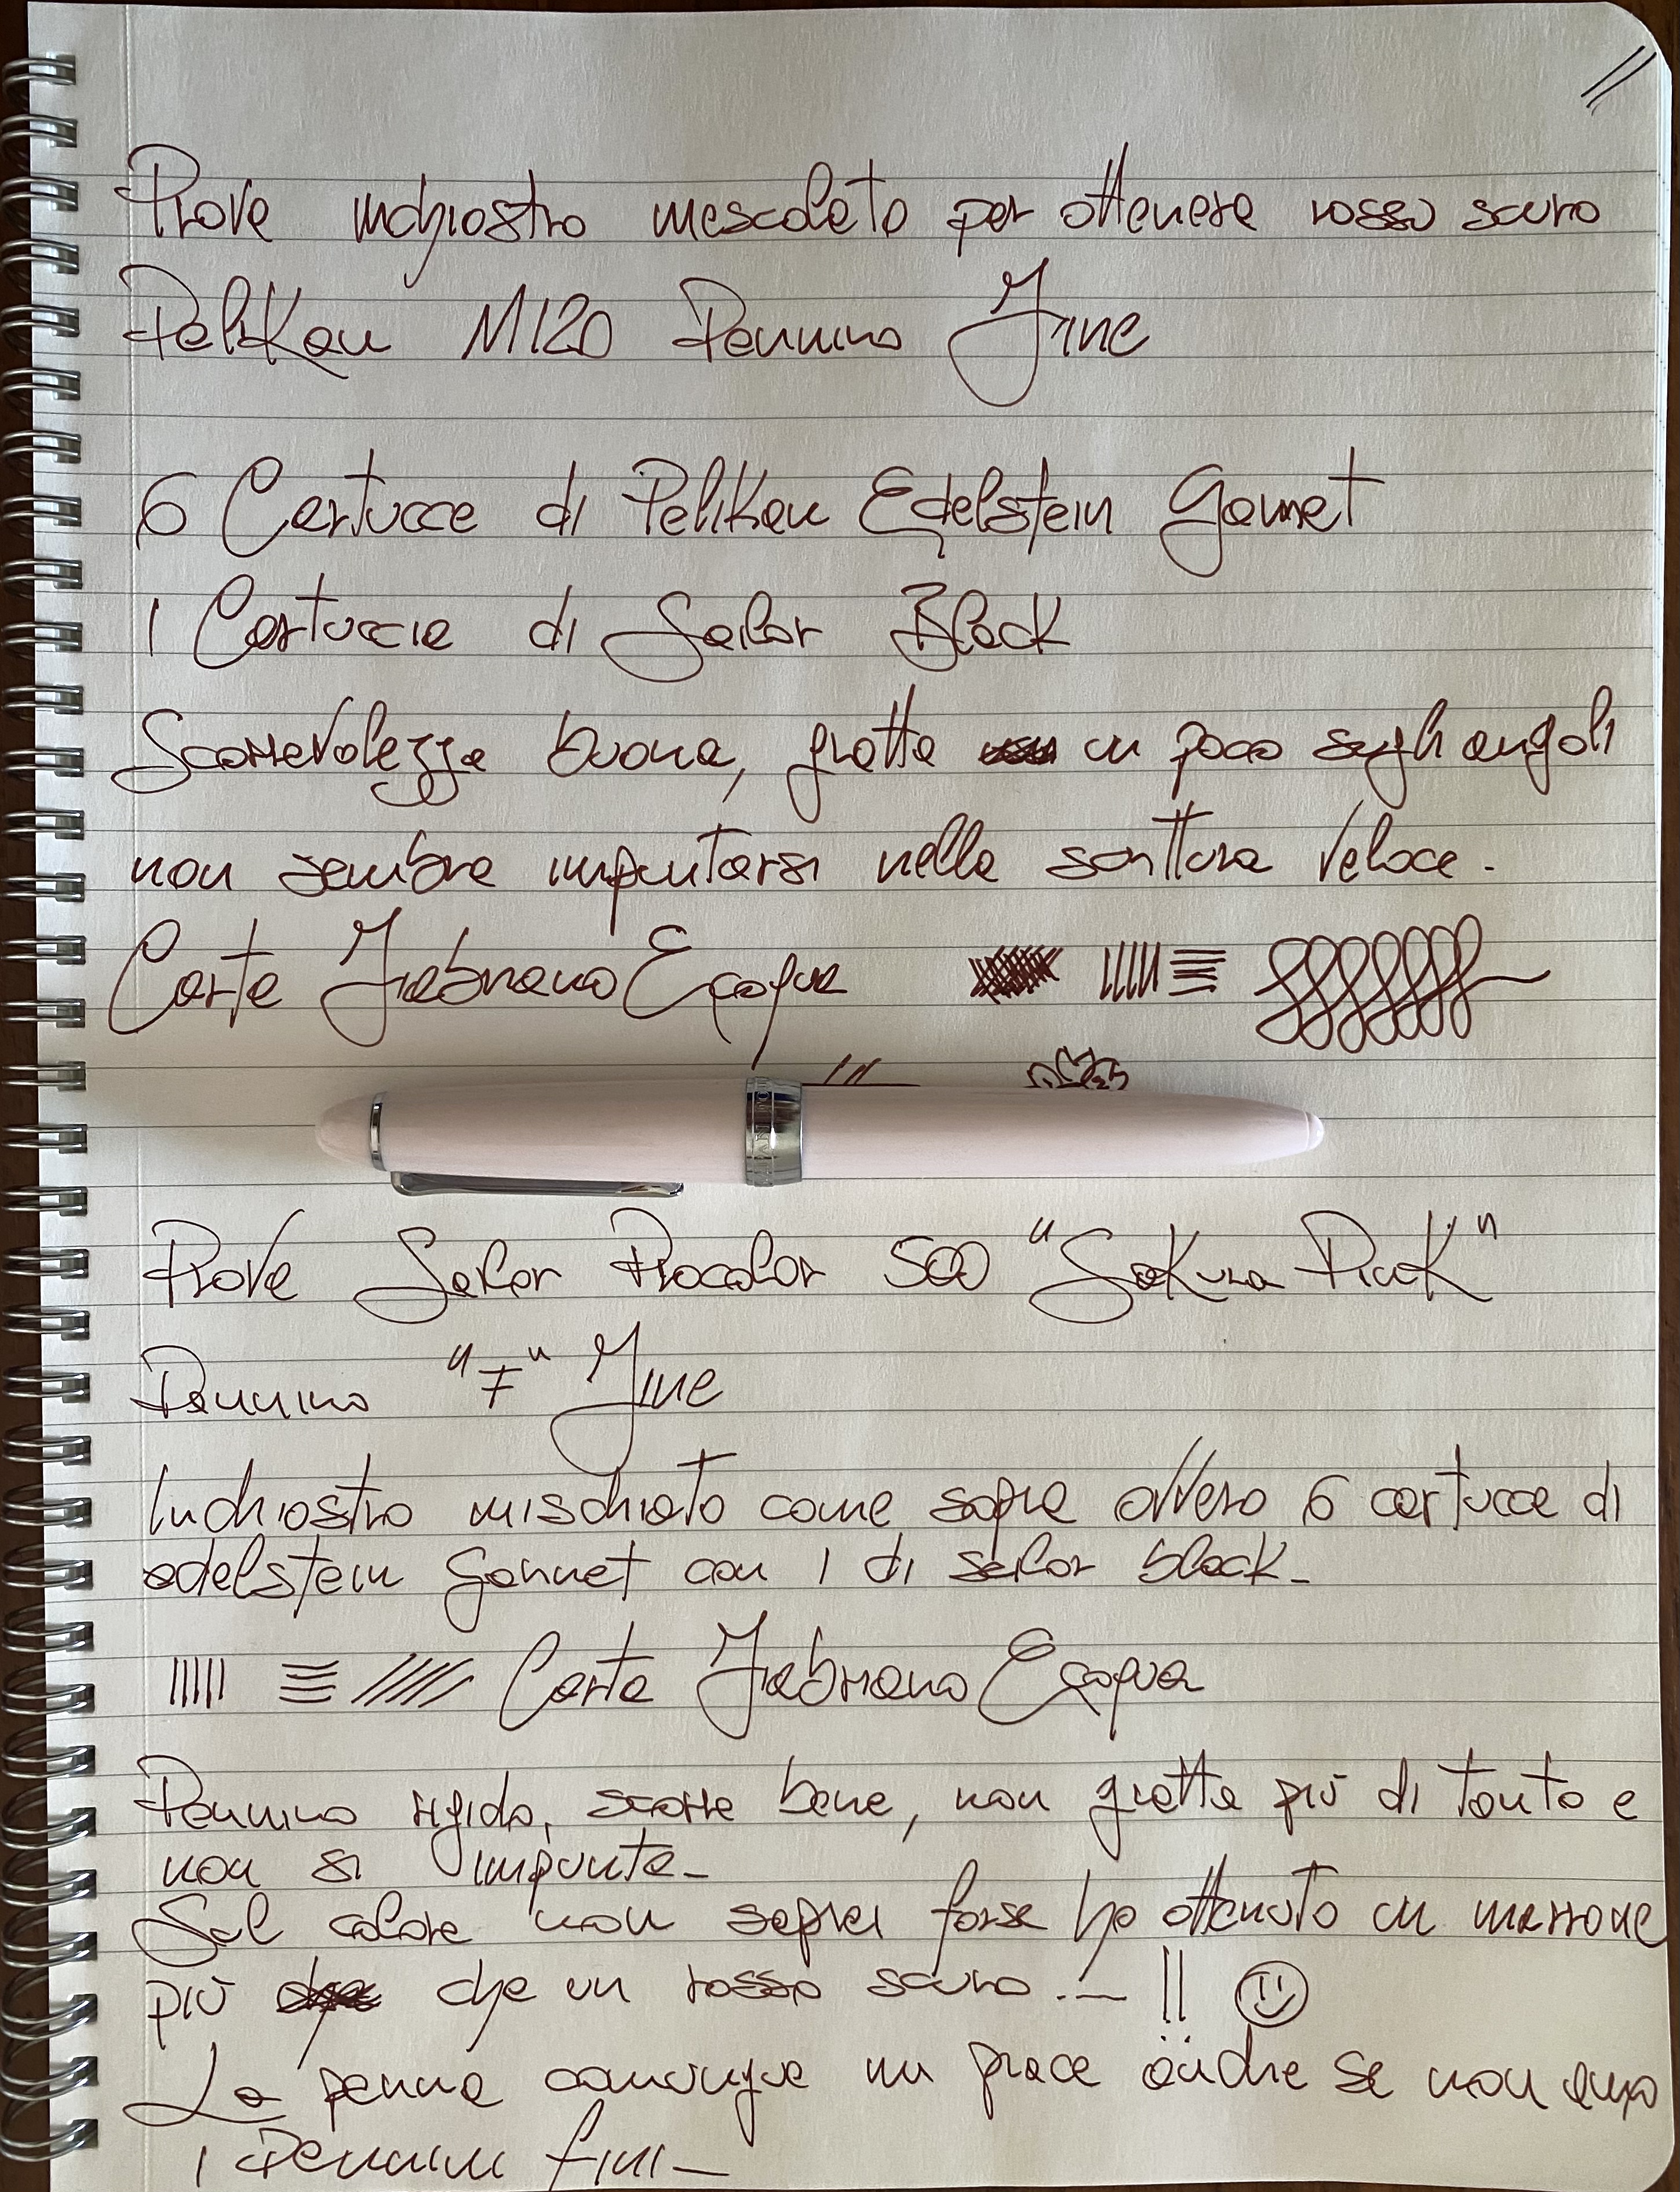 Prova inchiostro mescolato per ottenere rosso scuro
Pelikan M120 Pennino Fine
6 Cartucce di Pelikan Edelstein Garnet
1 Cartuccia di Sailor Black
Scorrevolezza buona, gratta un poco sugli angoli
non sembra impuntarsi nella scrittura veloce.
Carta Fabriano Ecoqua
Prova Sailor Procolor 500 "Sakura Pink"
Pennino "F" Fine
Inchiostro mischiato come sopra ovvero 6 cartucce di
edelstein Garnet con 1 di sailor black_
Carta Fabriano Ecoqua
Pennino rigido, scorre bene, non gratta più di tanto e
non si impunta_
Sul colore non saprei forse ho ottenuto un marrone
più che un rosso scuro...!!
La penna comunque mi piace anche se non amo
i Pennini fini_